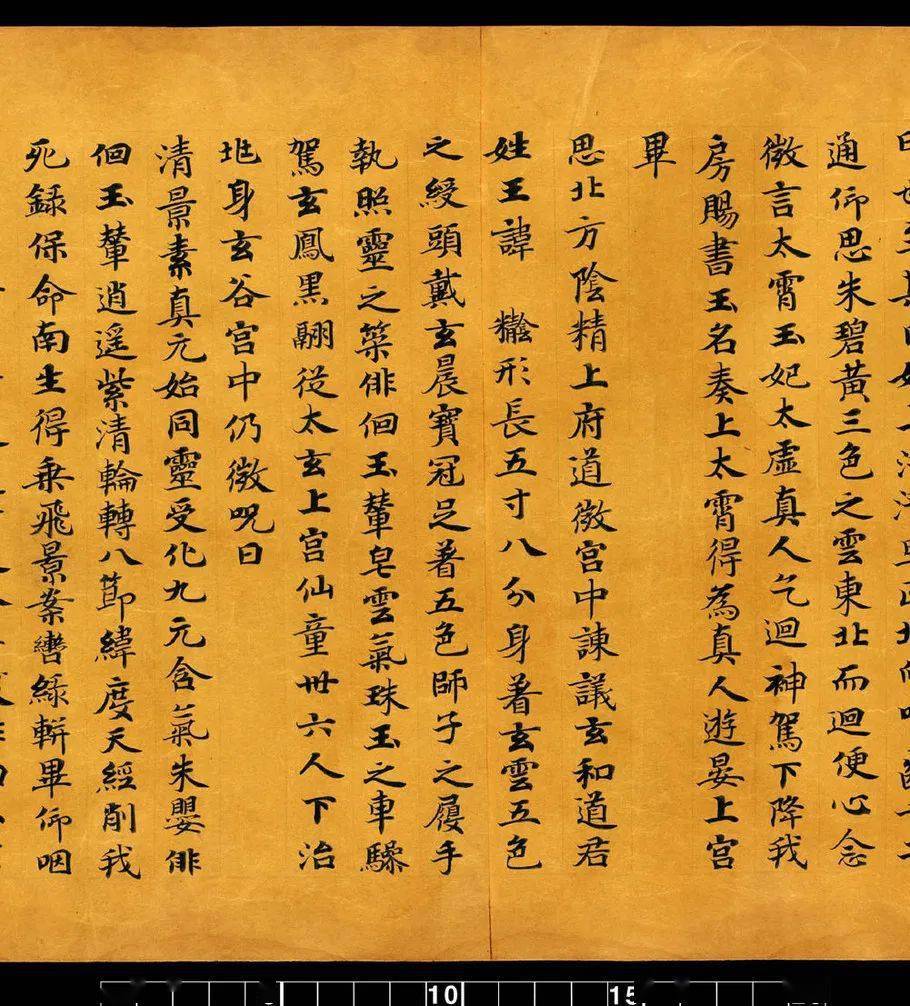 通仰思朱碧黃三色之雲東北而迴便心念
微言太霄玉妃太虛真人乞迴神駕下降我
房賜書玉名奏上太霄得為真人遊晏上宮
畢
思北方陰精上府道微宮中諫議玄和道君
姓王諱 形長五寸八分身著玄雲五色
之綬頭戴玄晨寶冠足著五色師子之履手
執照靈之策俳佪玉輦皂雲氣珠玉之車驂
駕玄鳳黑翮從太玄上宮仙童卅六人下治
地身玄谷宮中仍微呪曰
清景素真元始同靈受化九元含氣朱嬰俳
佪玉輦逍遥紫清輪轉八節緯度天經削我
死録保命南生得乗飛景案轡緑軿畢仰咽